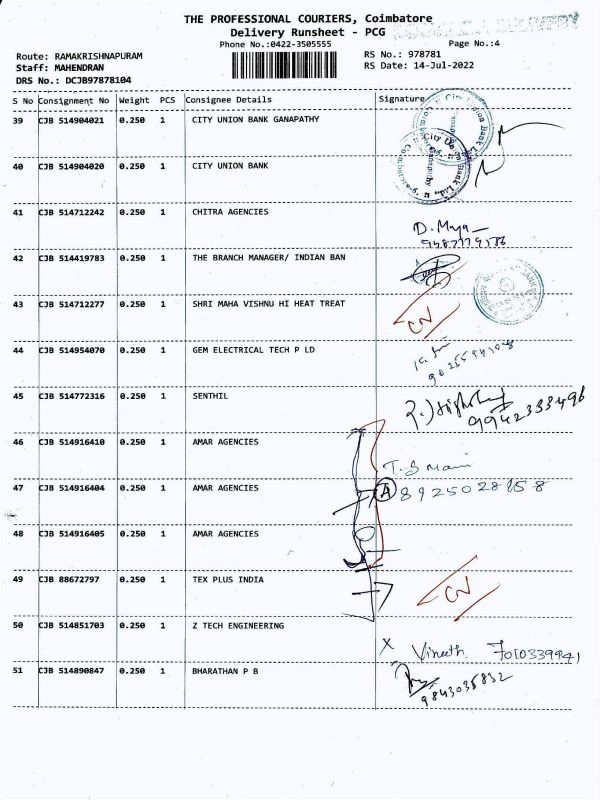 THE PROFESSIONAL COURIERS, Coimbatore
Delivery Runsheet - PCG
Phone No.:0422-3505555
Page No.:4
Route: RAMAKRISHNAPURAM
Staff: MAHENDRAN
DRS No.: DCJB97878104
RS No.: 978781
RS Date: 14-Jul-2022
S No Consignment No Weight PCS Consignee Details Signature
39 CJB 514904021 0.250 1 CITY UNION BANK GANAPATHY
40 CJB 514904020 0.250 1 CITY UNION BANK
41 CJB 514712242 0.250 1 CHITRA AGENCIES D. Maya
42 CJB 514419783 0.250 1 THE BRANCH MANAGER/ INDIAN BAN
43 CJB 514712277 0.250 1 SHRI MAHA VISHNU HI HEAT TREAT CN
44 CJB 514954070 0.250 1 GEM ELECTRICAL TECH P LD
45 CJB 514772316 0.250 1 SENTHIL
9942333496
46 CJB 514916410 0.250 1 AMAR AGENCIES T.S Mani
47 CJB 514916404 0.250 1 AMAR AGENCIES A 8925028158
48 CJB 514916405 0.250 1 AMAR AGENCIES
49 CJB 88672797 0.250 1 TEX PLUS INDIA CN
50 CJB 514851703 0.250 1 Z TECH ENGINEERING
X Vineeth 7010339941
51 CJB 514890847 0.250 1 BHARATHAN P B
9843035832